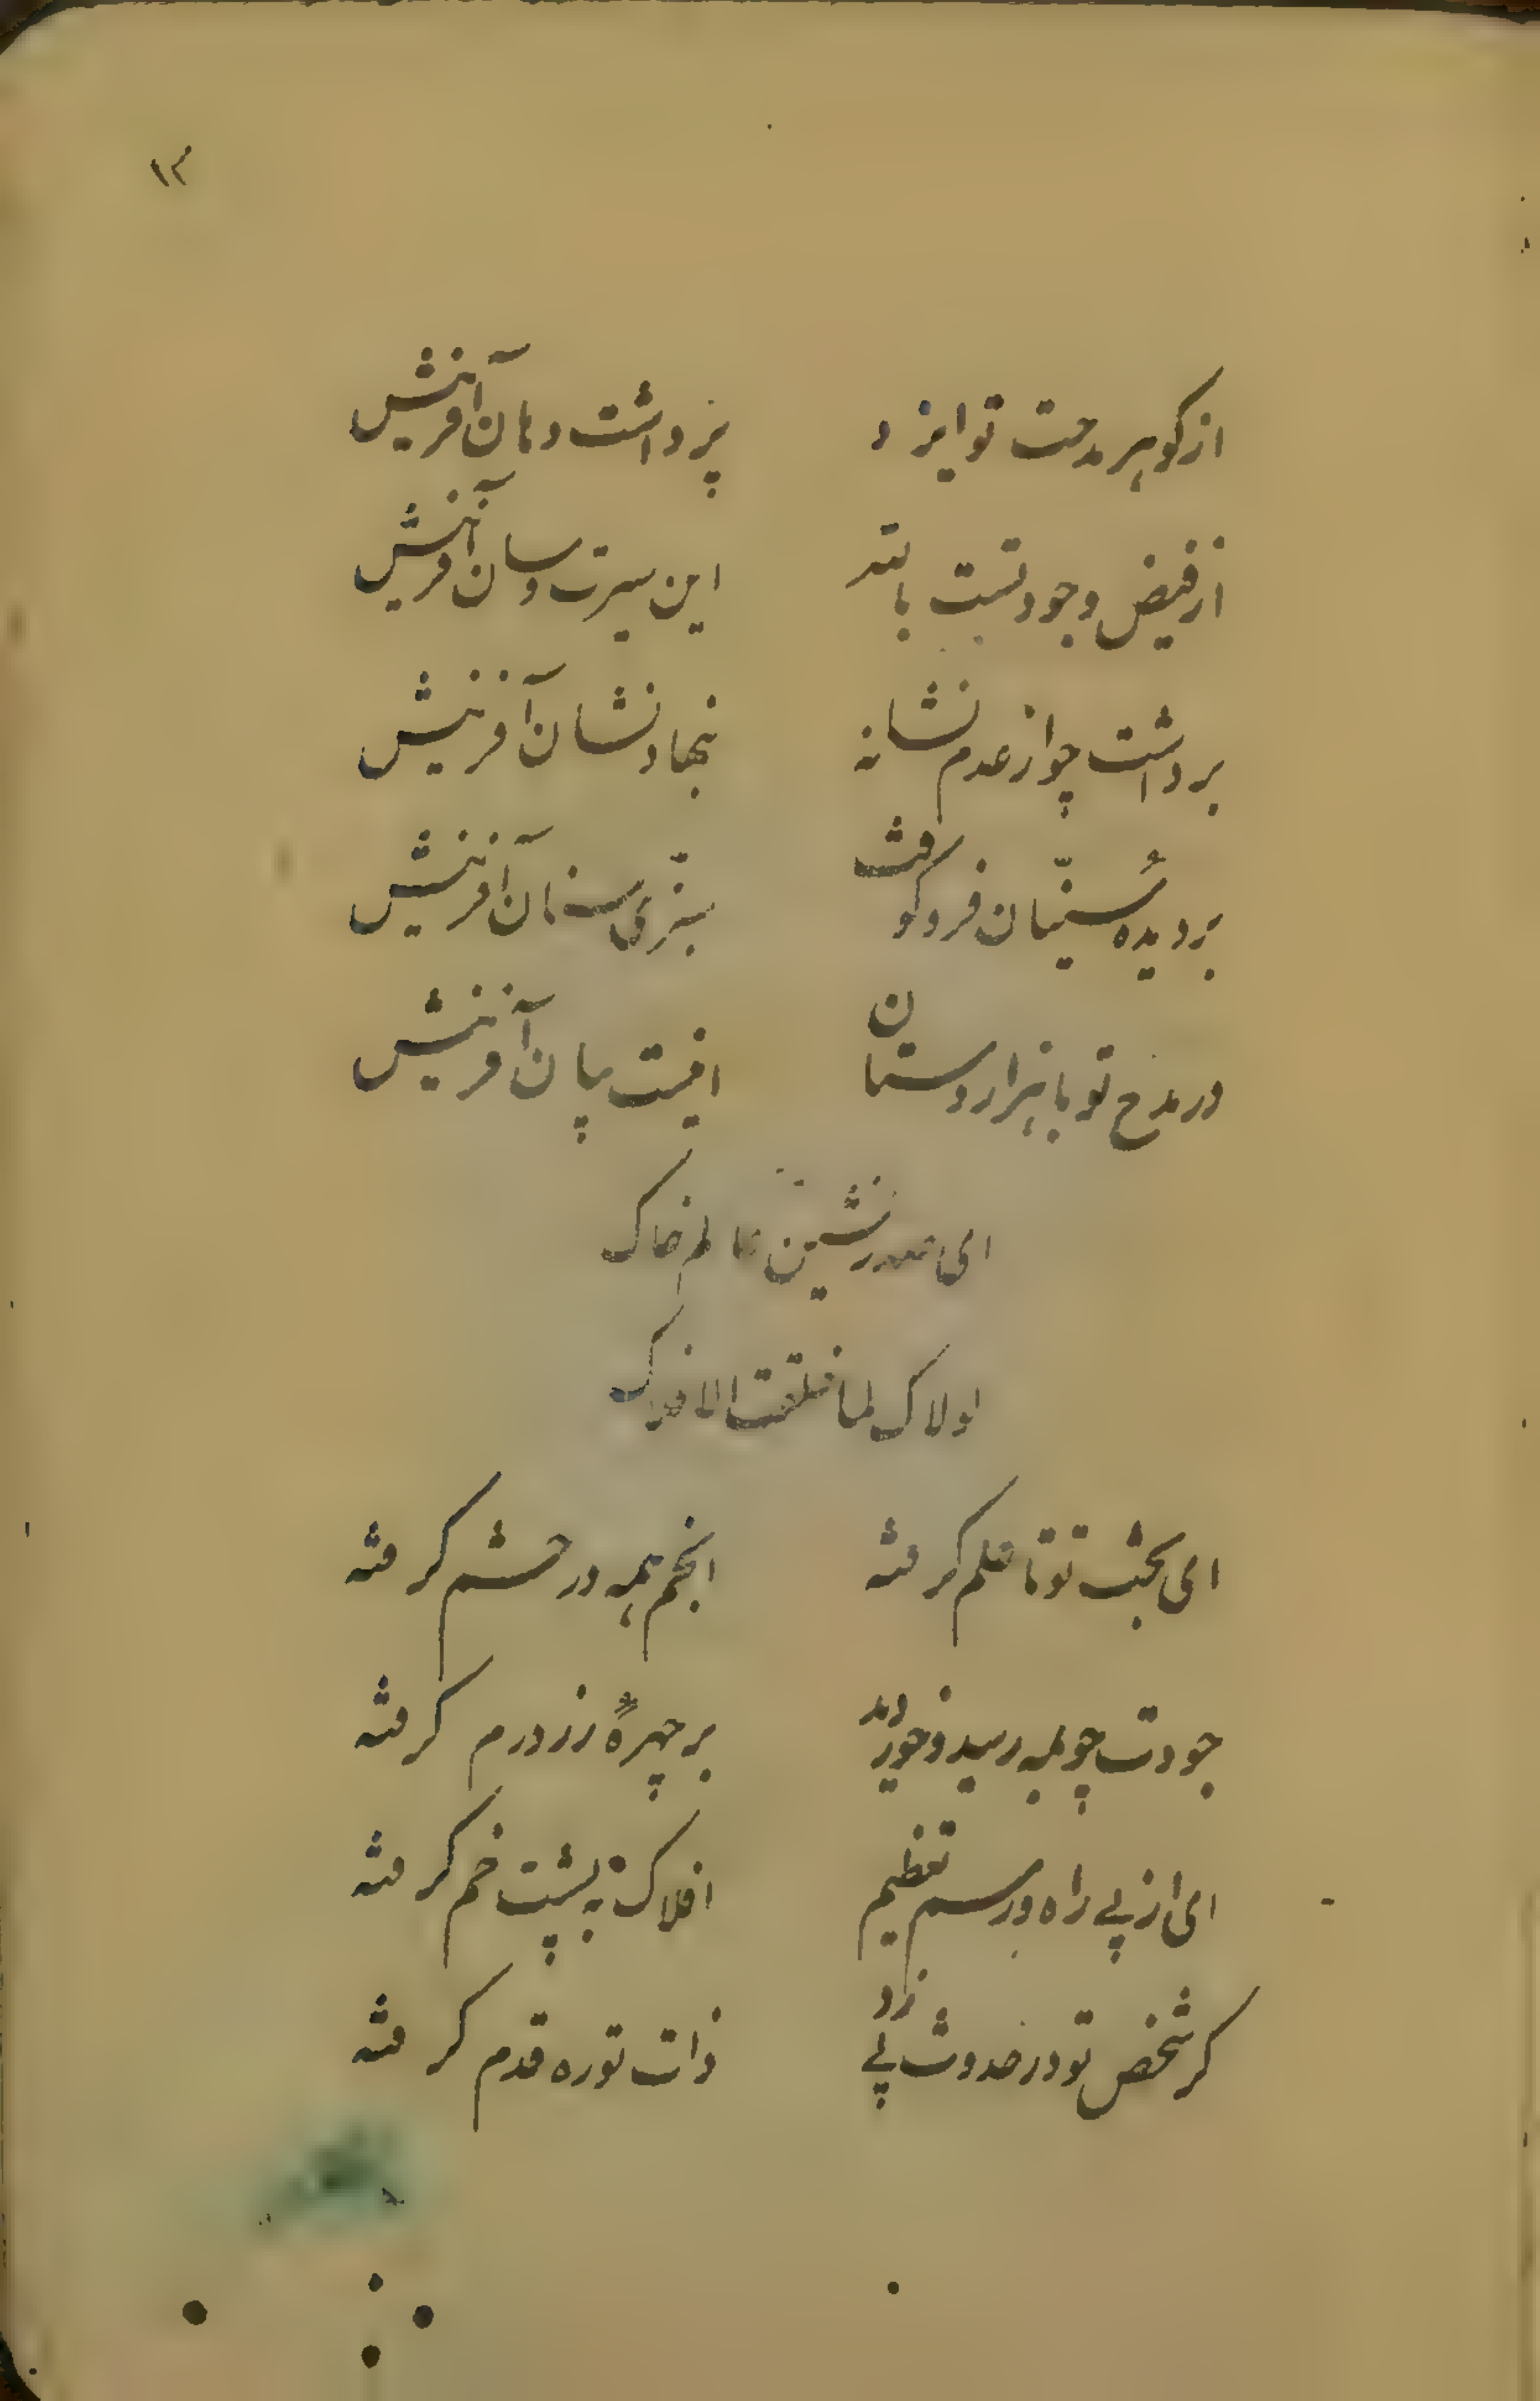 ۱۲
ازکوهر مدحت تو ایزد پر داشت دهان آفرینش
از فیض وجود تست باشد این سیرت وسان آفرینش
برداشت چو از عدم نشانه بنهاد نشان آفرینش
بر دیده سنیّان فرو کوفت سنان آفرینش
در مدح تو با هزار دستان اینست بیان آفرینش
ای صدر نشین عالم خاک
لولاک لما خلقت الافلاک
ای تو تا علم کرفته انجم همه در حشم کرفته
جودت چو رسید و خورد بر چهرهٔ زر درم کرفته
ای از پی راه و رسم تعظیم افلاک به پشت خم کرفته
کر شخص تو در حدوث زد پی ذات تو ره قدم کرفته